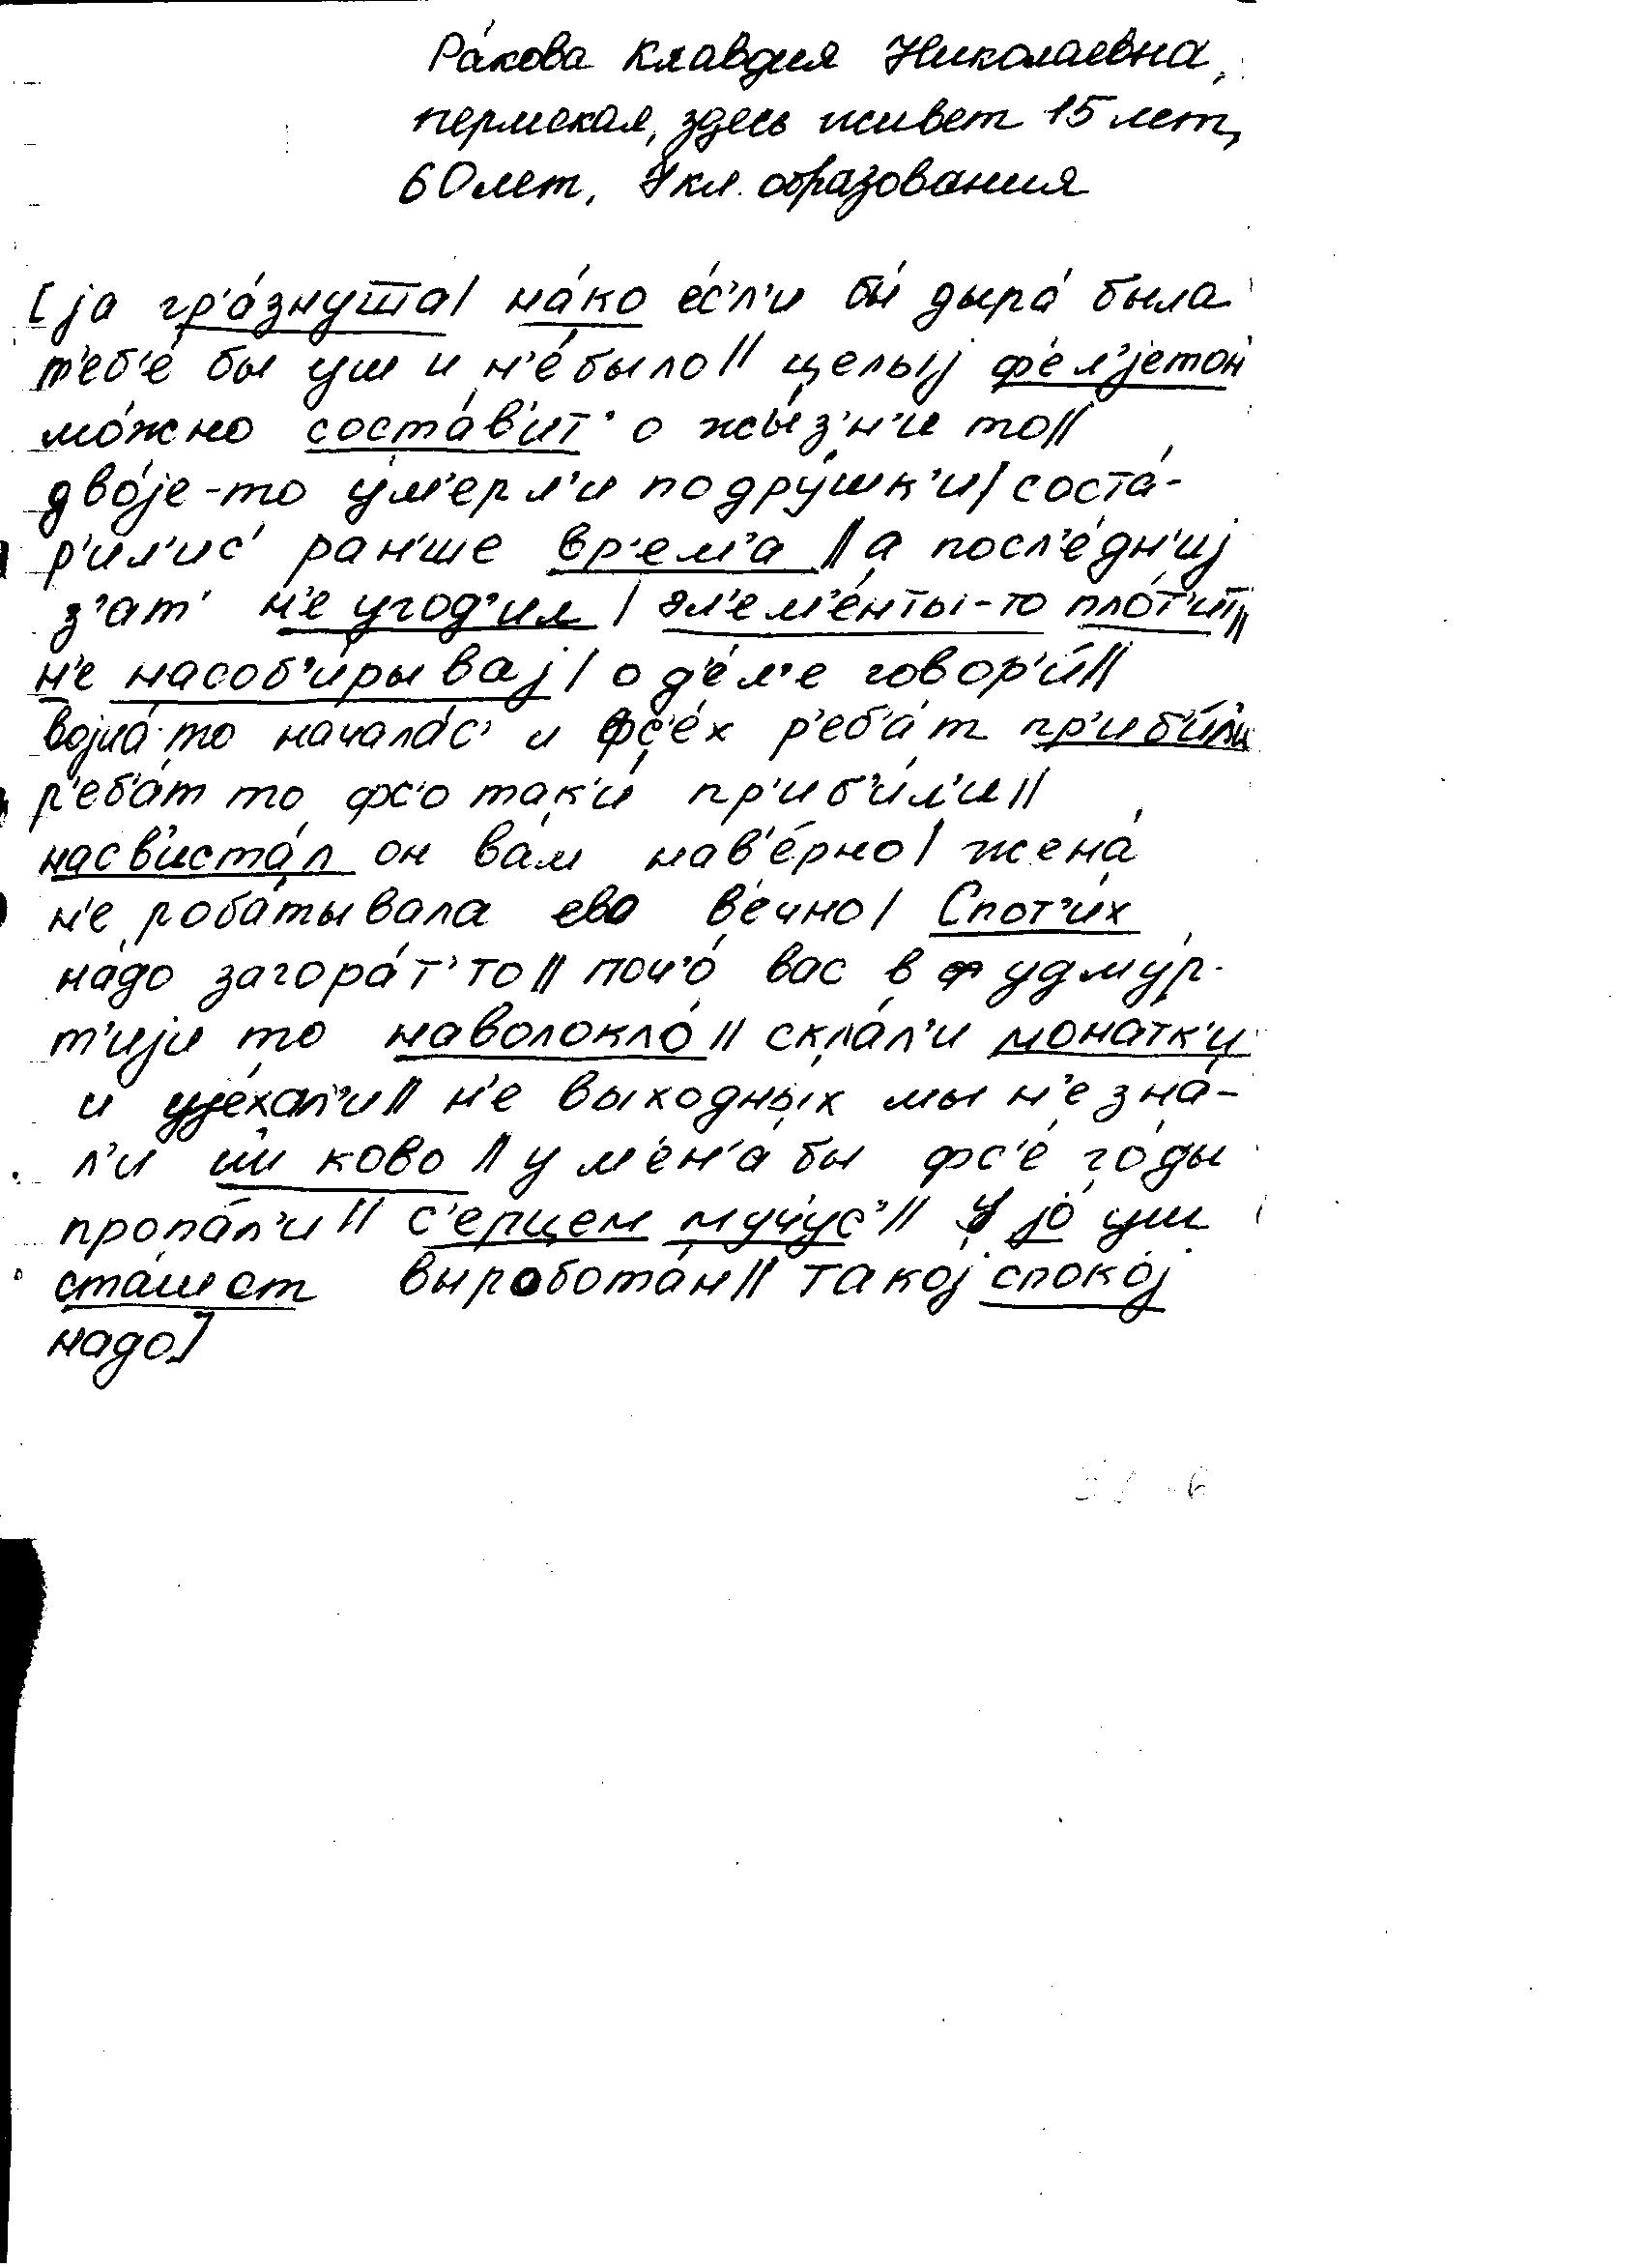 Ра́кова Клавдия Николаевна,
пермская, здесь живет 15 лет,
60 лет, 7 кл. образования
[ја гр'а́знута| на́ко е́с'л'и бы́ дыра́ была
т'еб'е́ бы уш и н'е́ было|| целыј ф'ел'јетон
мо́жно соста́в'ит' о жы́з'н'и то||
дво́је-то у́м'ерл'и подру́шк'и| соста́-
р'ил'ис' ран'ше вр'ем'а || а посл'е́дн'иј
з'ат' н'е угод'ил | эл'ем'е́нты-то пло́т'ит||
н'е насоб'и́рываj| о д'е́л'е говор'и́||
воjна́-то начала́с' и фс'е́х р'еб'а́т пр'иб'и́л'и
р'еб'а́т то фс'о так'и́ пр'иб'и́л'и||
насв'иста́л он ва́м нав'е́рно| жена́
н'е роба́тывала ево в'е́чно| Спот'и́х
на́до загора́т' то|| поч'о́ вас в удму́р-
т'иjи то наволокло́|| скла́л'и мона́тк'и
и уjе́хал'и|| н'е выходны́х мы н'е зна́-
л'и н'и ково || у м'ен'а́ бы фс'е́ го́ды
пропа́л'и|| с'ерцем му́ч'ус'|| jо́ уш
сташ ст выработа́н|| такоj споко́j
надо]